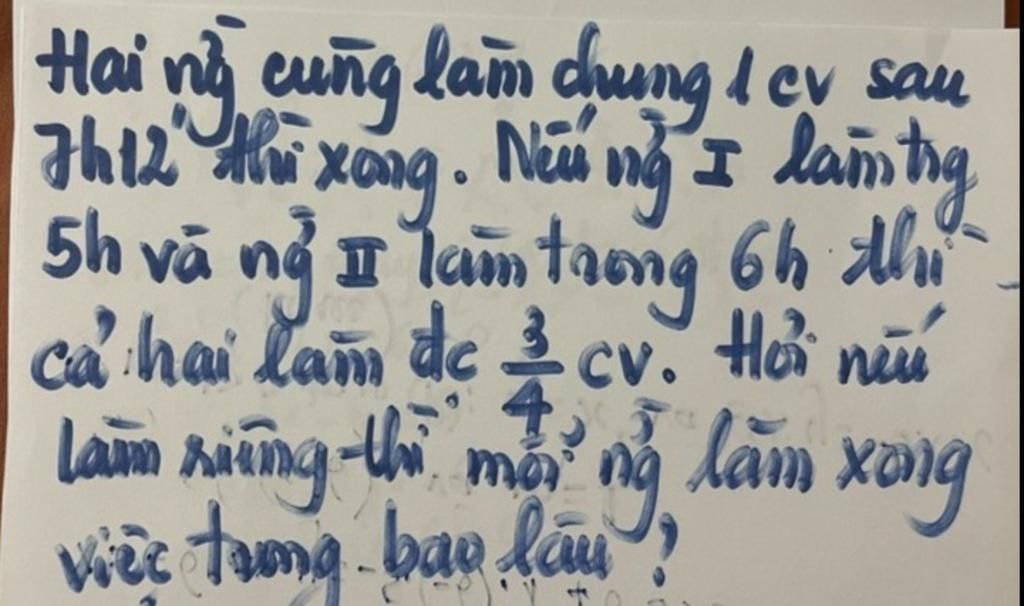 Hai ng̉ cùng làm chung 1 cv sau
7h12' thì xong. Nếu ng̉ I làm trg
5h và ng̉ II làm trong 6h thì
cả hai làm đc 3/4 cv. Hỏi nếu
làm riêng thì mỗi ng̉ làm xong
việc trong bao lâu?